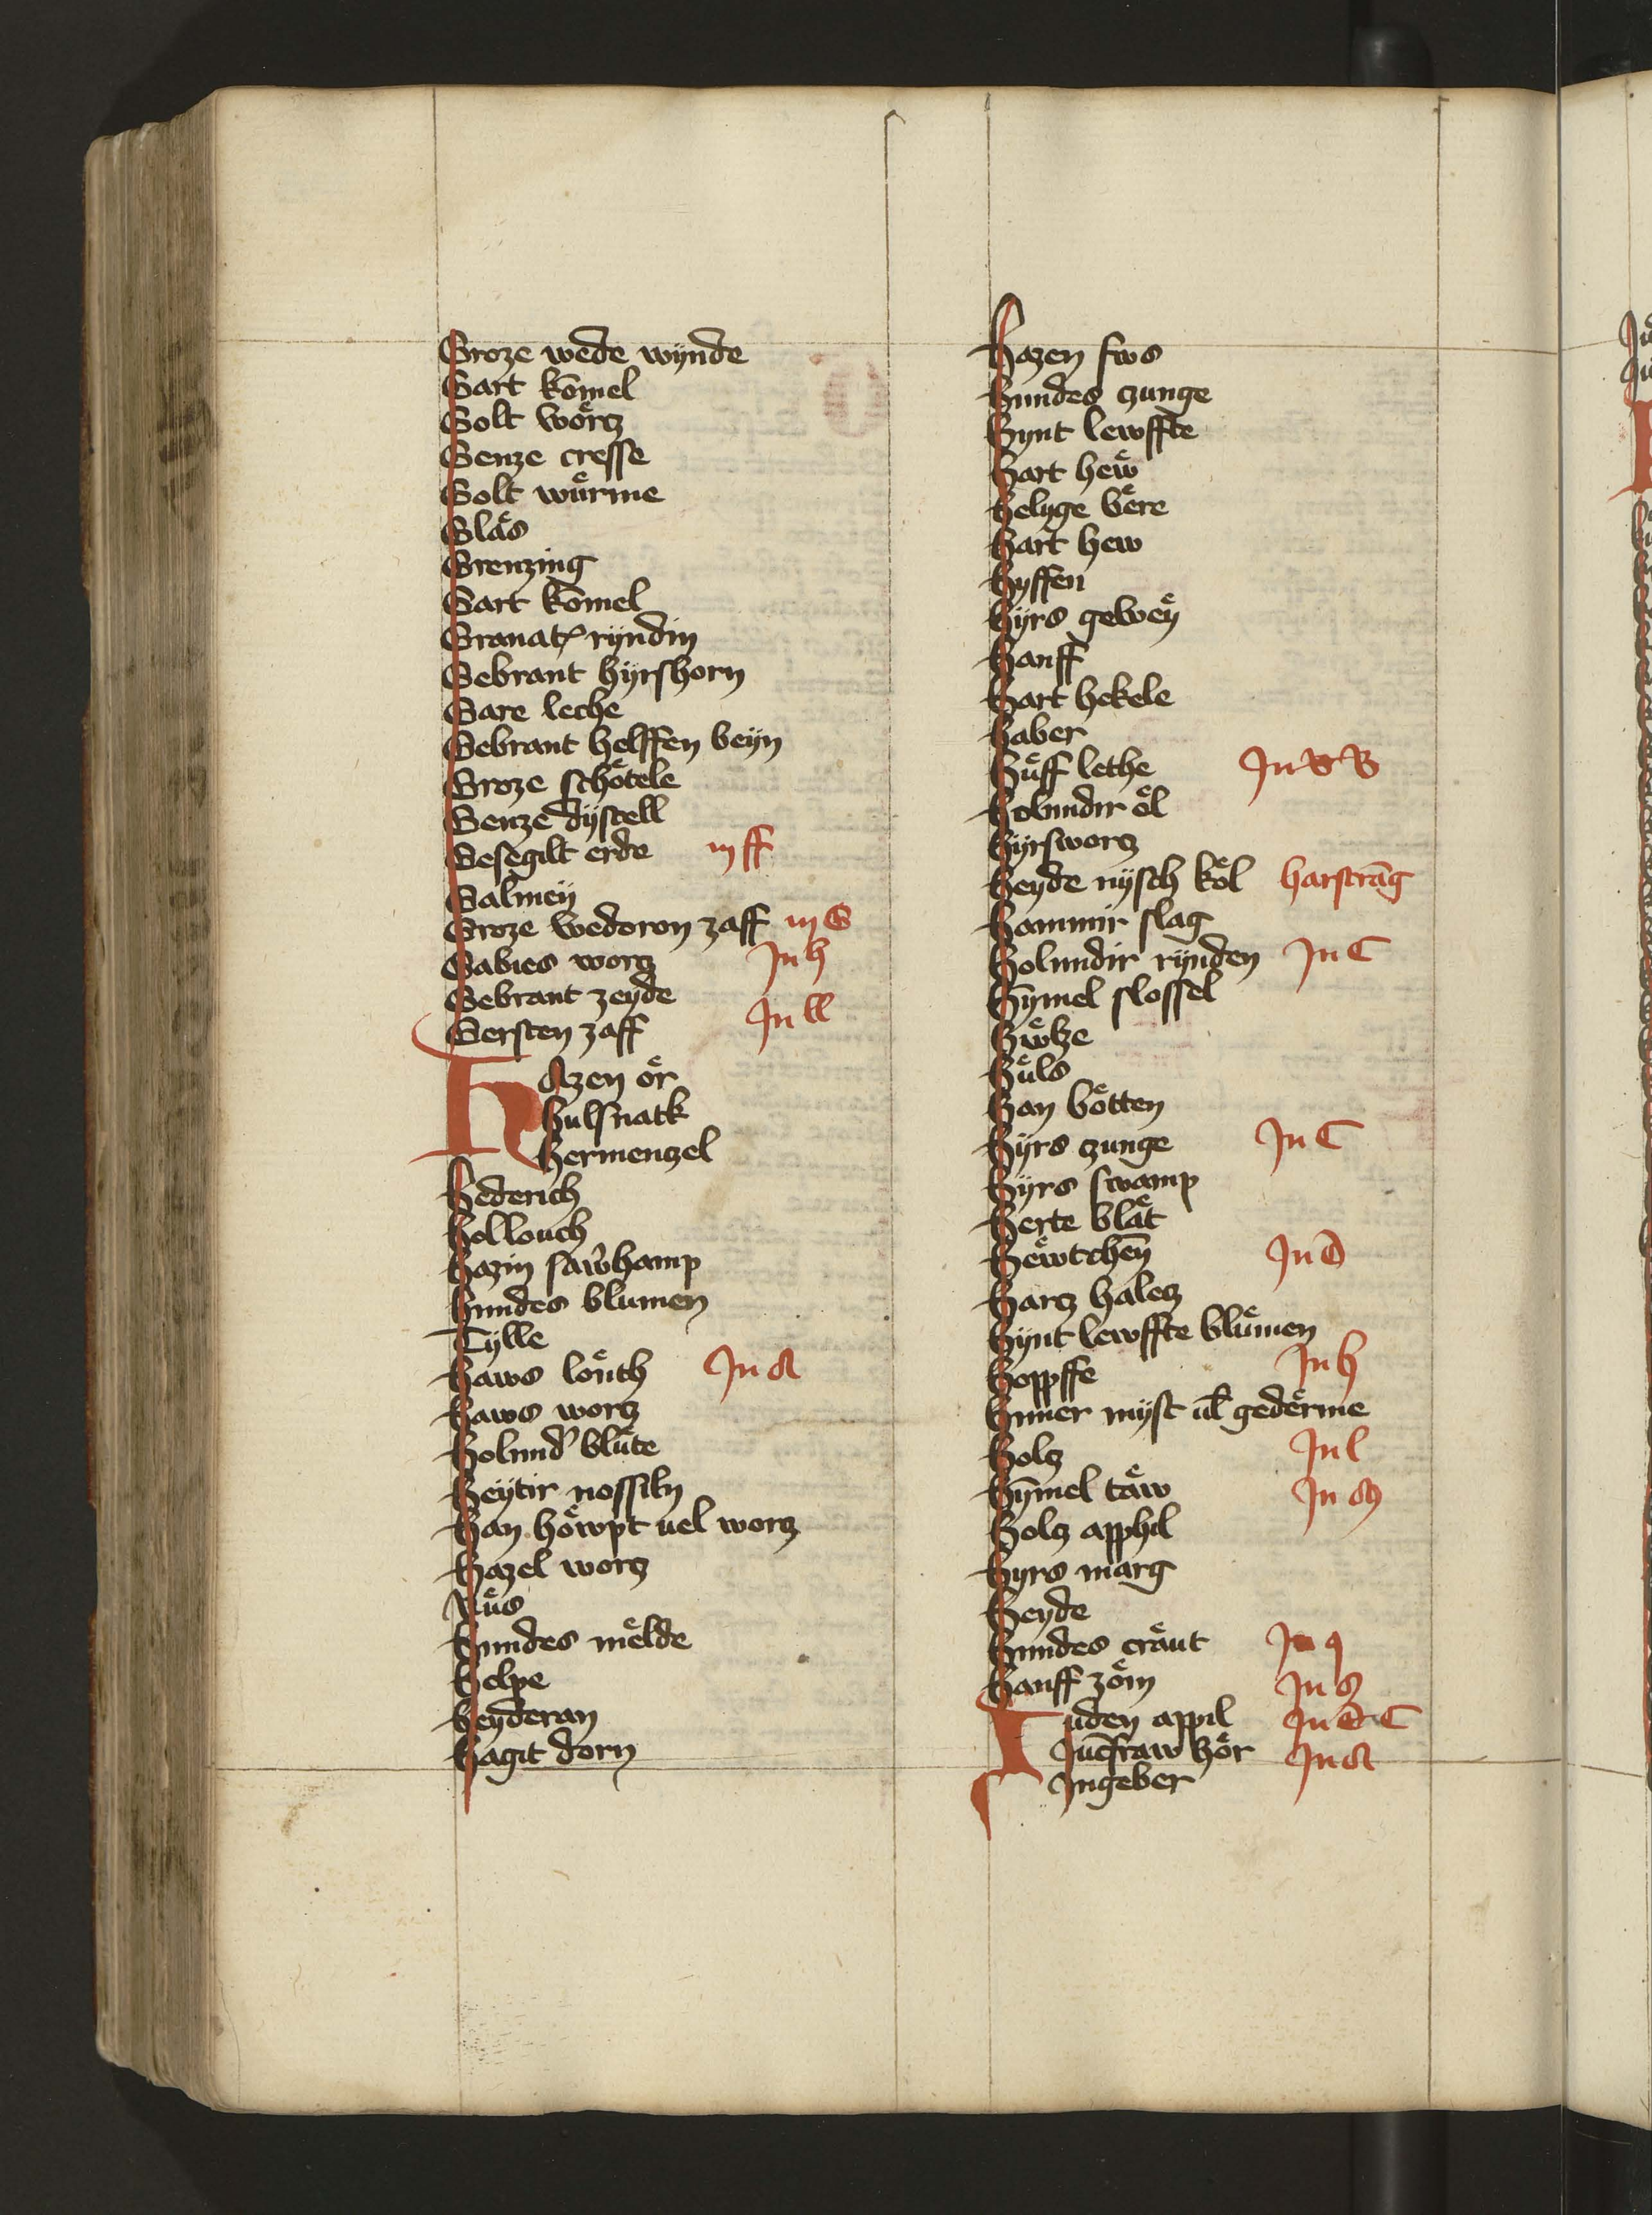 Groze wede wynde
Gart kōmel
Golt wörcz
Genze cresse
Golt wu̎rme
Glas
Grenzing
Gart kōmel
Granat ryndin
Gebrant hyrshorn
Gare leche
Gebrant helffen beyn
Groze schötele
Genze dystell
Gesegilt erde in ff
Galmey
Groze wedoron zaff in G
Gabies worcz In h
Gebrant zeyde
Gersten zaff In ll
Hazen ör
Hulsnatk
Hermenczel
Hederich
Hollouch
Hazin
Hundes blumen
Tylle
Haws louch In A
Haws worcz
Holund' blüte
Heytir nossiln
Han höwpt uel worcz
Hazel worcz
Nüs
Hundes melde
Helpe
Heyderan
Hagit dorn
Hazen fws
Hundes czunge
Hynt lewffte
Hart hew
Helyge bere
Hart hew
Hyffen
Hyrs gewey
Hanff
Hart hekele
Haber
Huff lethe In B B
Holundir öl
Hyrsworcz
Heyde nysch köl harstrāg
Hammir slag
Holundir rynden In C
Hȳmel slossel
Hwlze
Hüls
Han bötten
Hyrs czunge In C
Hyrs swamp
Herte blat
Hewtchen In D
Harcz halcz
Hynt lewffte blümen
Hoppffe In h
Hüner myst ul gederme
Holcz In l
Hȳmel taw In M
Holcz apphil
Hyrs marg
Heyde
Hundes craut In q
Hanff zöm In S
Iuden appil In C C
Jucfraw hör In A
Ingeber